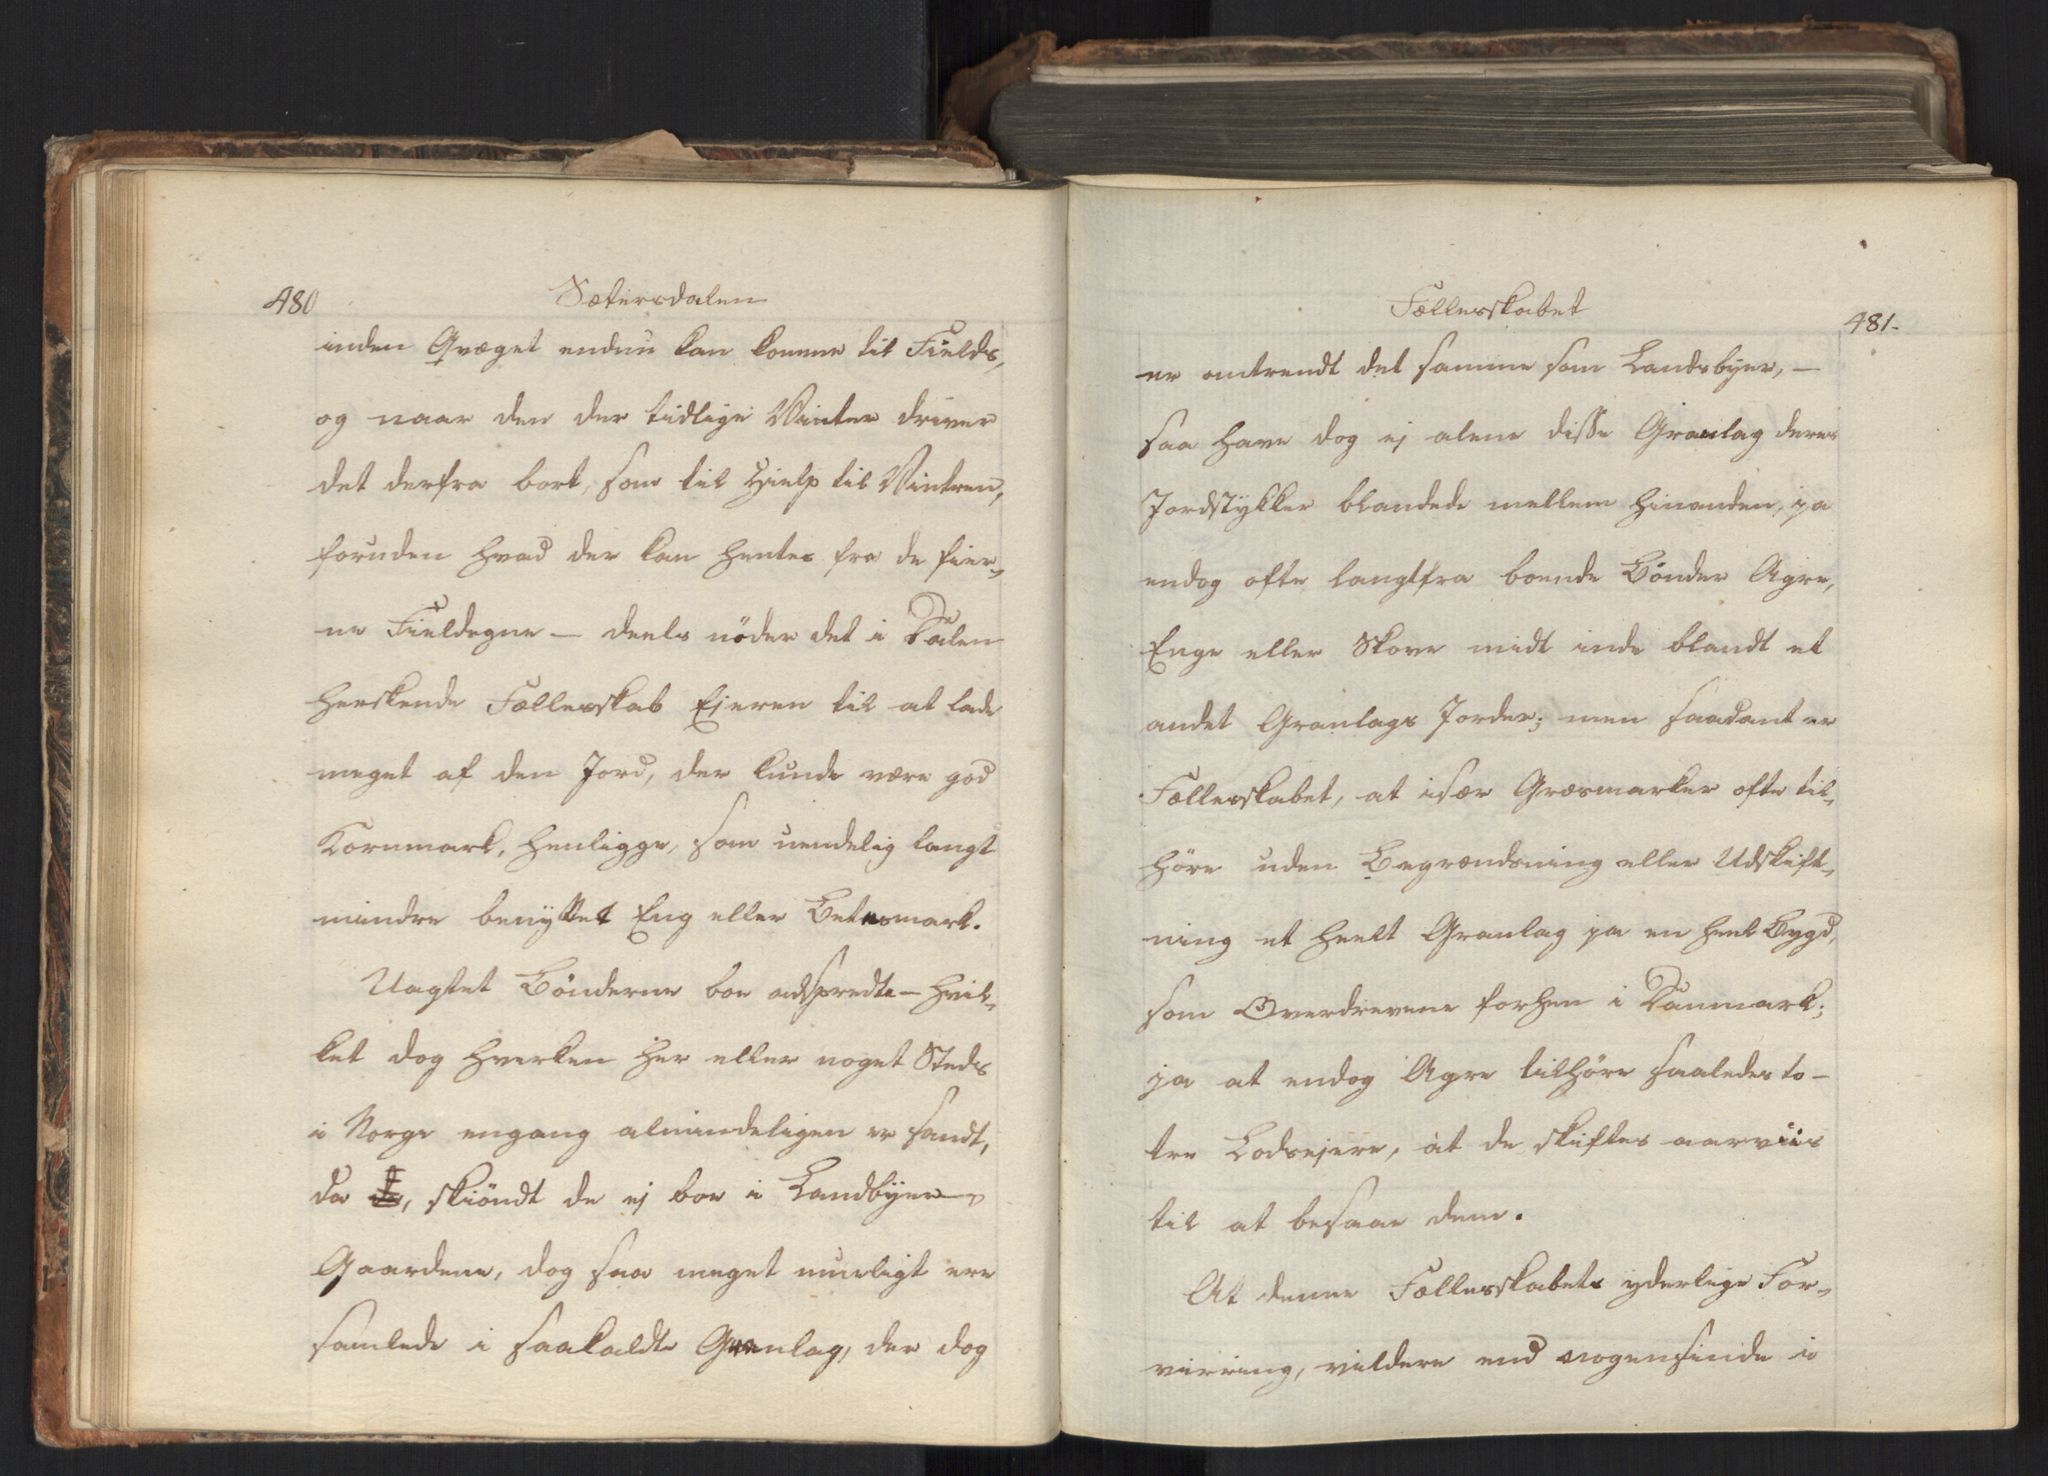 480
Sætersdalen
inden Qvæget endnu kan komme til Fields,
og naar den der tidlige Vinter driver
det derfra bort, som til Hielp til Vintren,
foruden hvad der kan hentes fra de fier-
ne Fieldegne — deels nöder det i Dalen
herskende Fællesskab Ejeren til at lade
meget af den Jord, der kunde være god
Kornmark, henligge, som uendelig langt
mindre benyttet Eng eller Betesmark.
Uagtet Bönderne boe adspredte — hvil-
ket dog hverken her eller noget Steds
i Norge engang almindeligen er sandt,
da, skiöndt de ej boe i Landbÿer —,
Gaardene, dog saa meget mueligt ere
samlede i saakaldte Granlag, der dog
Fællesskabet
481.
er omtrendt det samme som Landsbyer, —
saa have dog ej alene disse Granlag deres
Jordstykker blandede mellem hinanden, ja
endog ofte langtfra boende Bönder Agre,
Enge eller Skove midt inde blandt et
andet Granlags Jorder; men saadant er
Fællesskabet, at især Græsmarker ofte til-
höre uden Begrændsning eller Udskift-
ning et heelt Granlag ja en heel Bygd,
som Overdrevene forhen i Danmark;
ja at endog Agre tilhöre saaledes to —
tre Lodsejere, at de skiftes aarviis
til at besaae dem.
At denne Fællesskabets yderlige For-
virring, vildere end nogensinde i